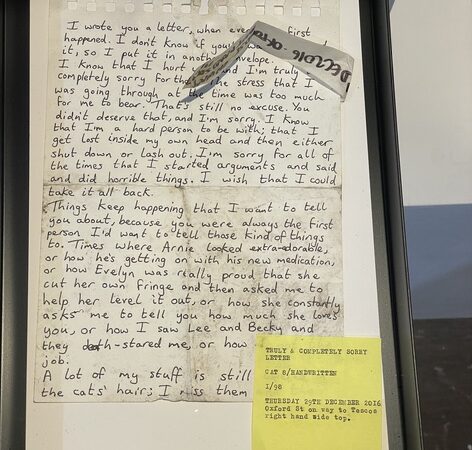 I wrote you a letter, when first
happened. I don't know if you
it, so I put it in envelope.
I know that I hurt and I'm truly
completely sorry for The stress that I
was going through at the time was too much
for me to bear. That's still no excuse. You
didn't deserve that, and I'm sorry. I know
that I'm a hard person to be with; that I
get lost inside my own head and then either
shut down or lash out. I'm sorry for all of
the times that I started arguments and said
and did horrible things. I wish that I could
take it all back.
Things keep happening that I want to tell
you about, because you were always the first
person I'd want to tell those kind of things
to. Times where Arnie looked extra-adorable,
or how he's getting on with his new medication,
or how Evelyn was really proud that she
cut her own fringe and then asked me to
help her level it out, or how she constantly
asks me to tell you how much she loves
you, or how I saw Lee and Becky and
they death-stared me, or how
job.
A lot of my stuff is still
the cats' hair; I miss them
DEC 2016
TRULY & COMPLETELY SORRY
LETTER
CAT 8/HANDWRITTEN
1/98
THURSDAY 29TH DECEMBER 2016
Oxford St on way to Tescos
right hand side top.